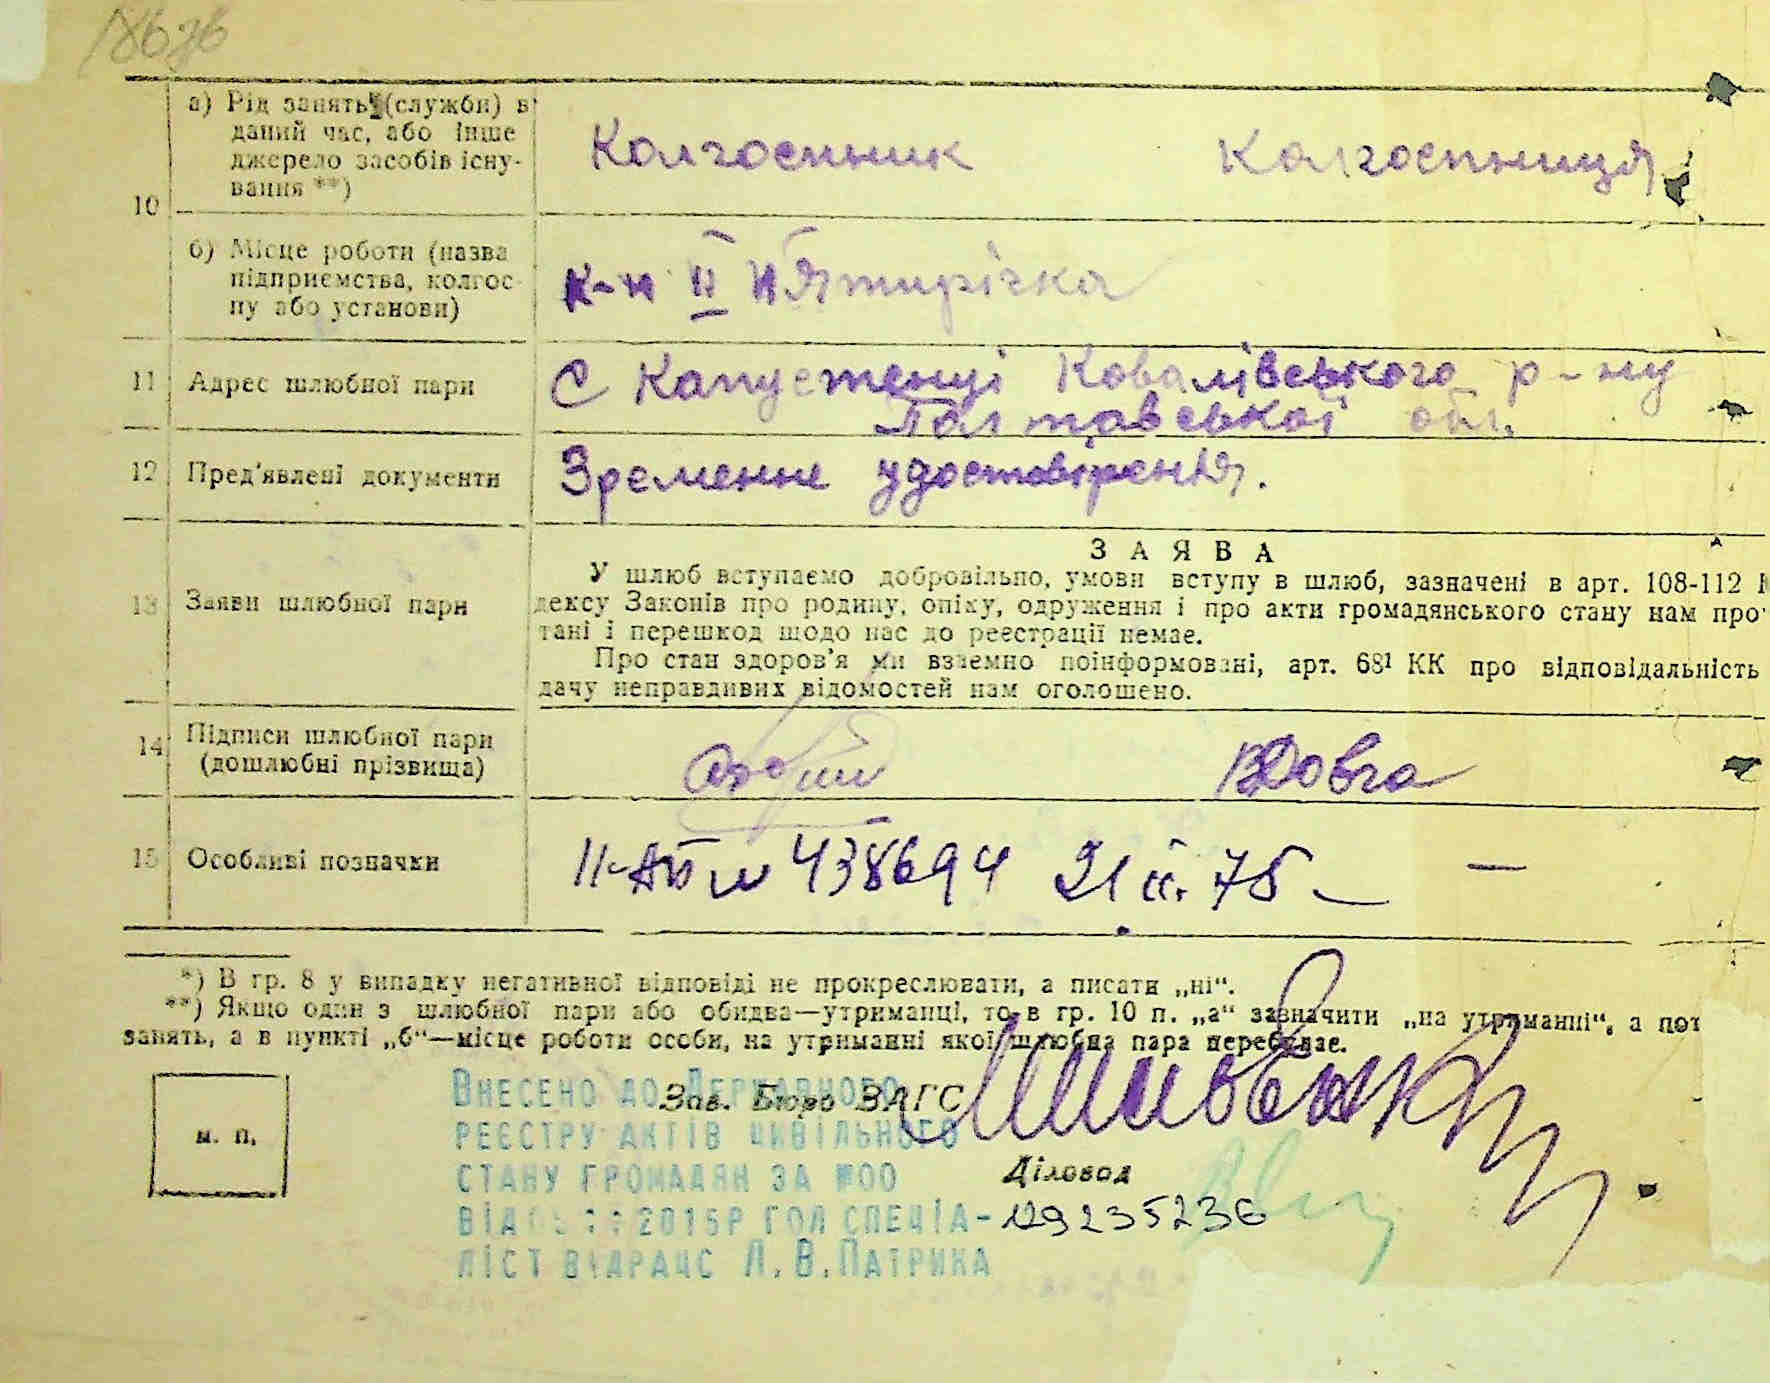 10
а) Рід занять (служби) в
даний час, або інше
джерело засобів існу-
вання **)
Колгоспник Колгоспниця
б) Місце роботи (назва
підприємства, колгос-
пу або установи)
к-п ІІ Пятирічка
11 Адрес шлюбної пари
С Капустенці Ковалівського р-ну
Полтавської обл.
12 Пред'явлені документи
Зременне удоставіреня.
13 Заяви шлюбної пари
ЗАЯВА
У шлюб вступаємо добровільно, умови вступу в шлюб, зазначені в арт. 108-112 К
дексу Законів про родину, опіку, одруження і про акти громадянського стану нам про
тані і перешкод щодо нас до реєстрації немає.
Про стан здоров'я ми взаємно поінформовані, арт. 68¹ КК про відповідальність
дачу неправдивих відомостей нам оголошено.
14 Підписи шлюбної пари
(дошлюбні прізвища)
ВДовга
15 Особливі позначки
438694 21 ІІ. 75 —
*) В гр. 8 у випадку негативної відповіді не прокреслювати, а писати „ні“.
**) Якщо один з шлюбної пари або обидва—утриманці, то в гр. 10 п. „а“ зазначити „на утриманні“, а пот
занять, а в пункті „б“—місце роботи особи, на утриманні якої шлюбна пара перебуває.
м. п.
Зав. Бюро ЗАГС
Діловод
Внесено до Державного
реєстру актів цивільного
стану громадян за №00
від 2015р гол спеціа- 129235236
ліст відрацс Л. В. Патрика